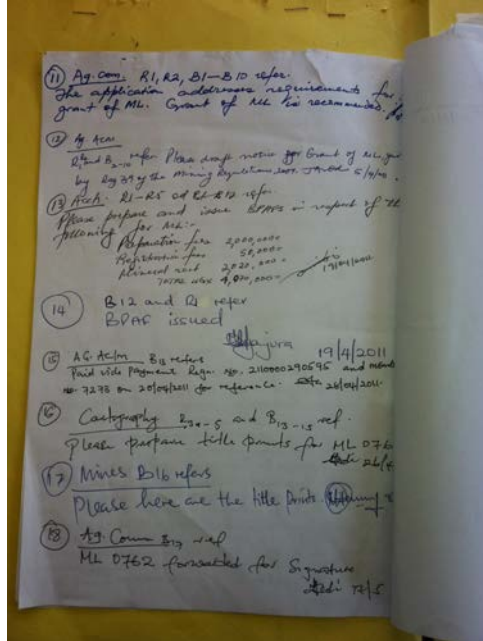 (11) Ag. Com. R1, R2, B1–B10 refer.
The application addresses requirements for
grant of ML. Grant of ML is recommended.
(12) Ag. ACM
refer Please draft notice for Grant of ML
by Reg 39 of the Mining Regulations
(13) R1–R5 B12 refer.
Please prepare and issue BPAFs in respect of the
following for ML:-
Preparation fees 2,000,000
Registration fees 50,000
Mineral rent 2,020,000
Total 4,070,000
19/04/2011
(14) B12 and R1 refer
BPAF issued
19/4/2011
(15) AG. Ac/m B13 refers
Paid vide Payment Regn. No. 2110000290595 and
no 7273 on 20/04/2011 for reference. 26/04/2011.
(16) Cartography and B13-15 ref.
Please prepare title prints for ML 076
26/4
(17) Mines B16 refers
Please here are the title prints
(18) Ag. Comm B17 ref
ML 0762 forwarded for Signature
17/5